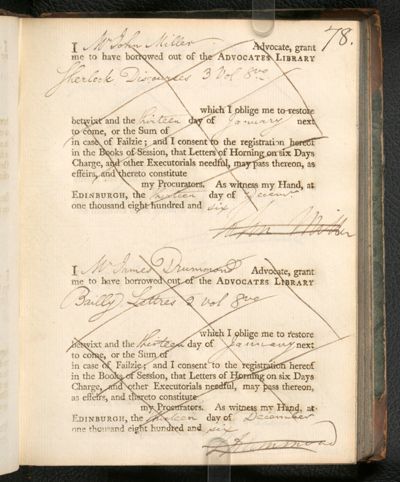 78.
I Mr John Miller Advocate, grant
me to have borrowed out of the ADVOCATES LIBRARY
Sherlock Discourses 3 Vol 8vo
which I oblige me to restore
betwixt and the thirteen day of January next
to come, or the Sum of
in case of Failzie; and I consent to the registration hereof
in the Books of Session, that Letters of Horning on six Days
Charge, and other Executorials needful, may pass thereon, as
effeirs, and thereto constitute
my Procurators. As witness my Hand, at
EDINBURGH, the thirteen day of Decemr
one thousand eight hundred and six
John Miller
I Mr James Drummond Advocate, grant
me to have borrowed out of the ADVOCATES LIBRARY
Bailly Lettres 2 Vol 8vo
which I oblige me to restore
betwixt and the thirteen day of January next
to come, or the Sum of
in case of Failzie; and I consent to the registration hereof
in the Books of Session, that Letters of Horning on six Days
Charge, and other Executorials needful, may pass thereon,
as effeirs, and thereto constitute
my Procurators. As witness my Hand, at
EDINBURGH, the thirteen day of December
one thousand eight hundred and six
Drummond